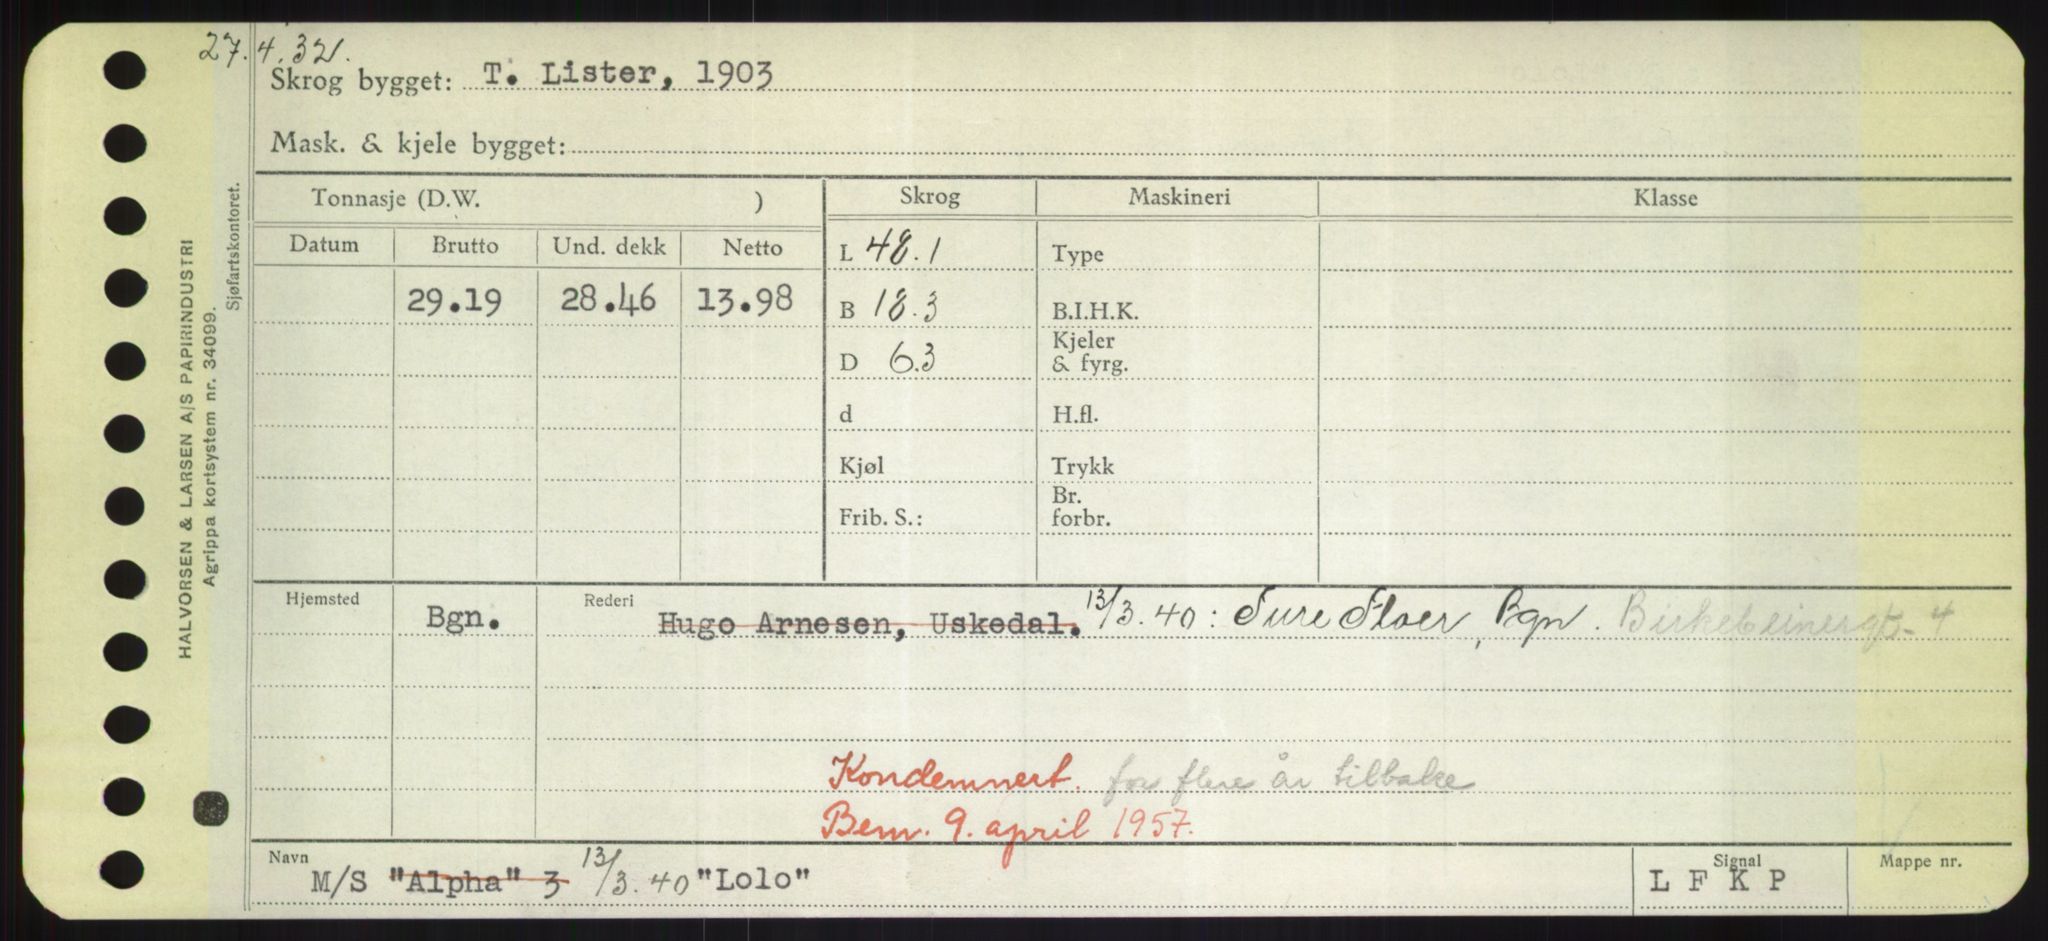 27.4.32.
Skrog bygget: T. Lister, 1903
Mask. & kjele bygget:
Tonnasje (D.W. ) Skrog Maskineri Klasse
Datum Brutto Und. dekk Netto
L 48.1 Type
29.19 28.46 13.98
B 18.3 B.I.H.K.
D 6.3 Kjeler & fyrg.
d H.fl.
Kjøl Trykk
Frib. S.: Br. forbr.
Hjemsted Bgn. Rederi Hugo Arnesen, Uskedal. 13/3.40: Sure Floer, Bgn. Birkebeinergt. 4
Kondemnert. for flere år tilbake
Bem. 9. april 1957.
Navn M/S "Alpha" 3 13/3.40 "Lolo" Signal L F K P Mappe nr.
HALVORSEN & LARSEN A/S PAPIRINDUSTRI
Agrippa kortsystem nr. 34099.
Sjøfartskontoret.